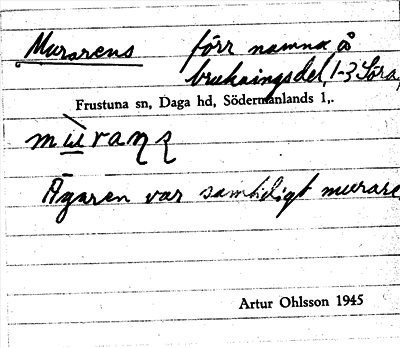 Murarens förr namn å
brukningsdel, 1-3 Söra
Frustuna sn, Daga hd, Södermanlands l,.
Ägaren var samtidigt murare
Artur Ohlsson 1945